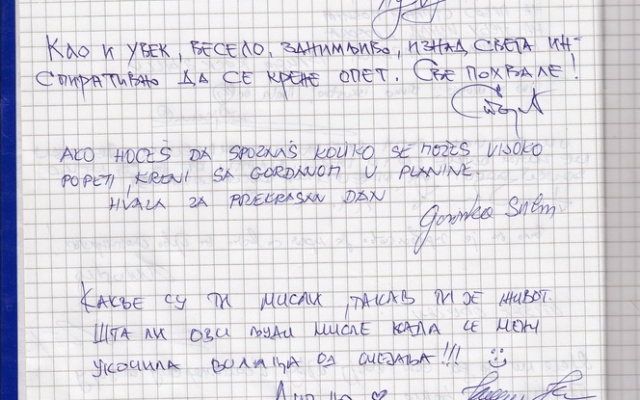 Као и увек, весело, занимљиво, изнад света ин-
спиративно да се крене опет. Све похвале!
AKO HOĆEŠ DA SPOZNAŠ KOLIKO SE MOŽEŠ VISOKO
POPETI, KRENI SA GORDANOM U PLANINE.
HVALA ZA PREKRASAN DAN
Какве су ти мисли, такав ти је живот.
Шта ли ови људи мисле када се мени
укочила вилица од смејања!!!